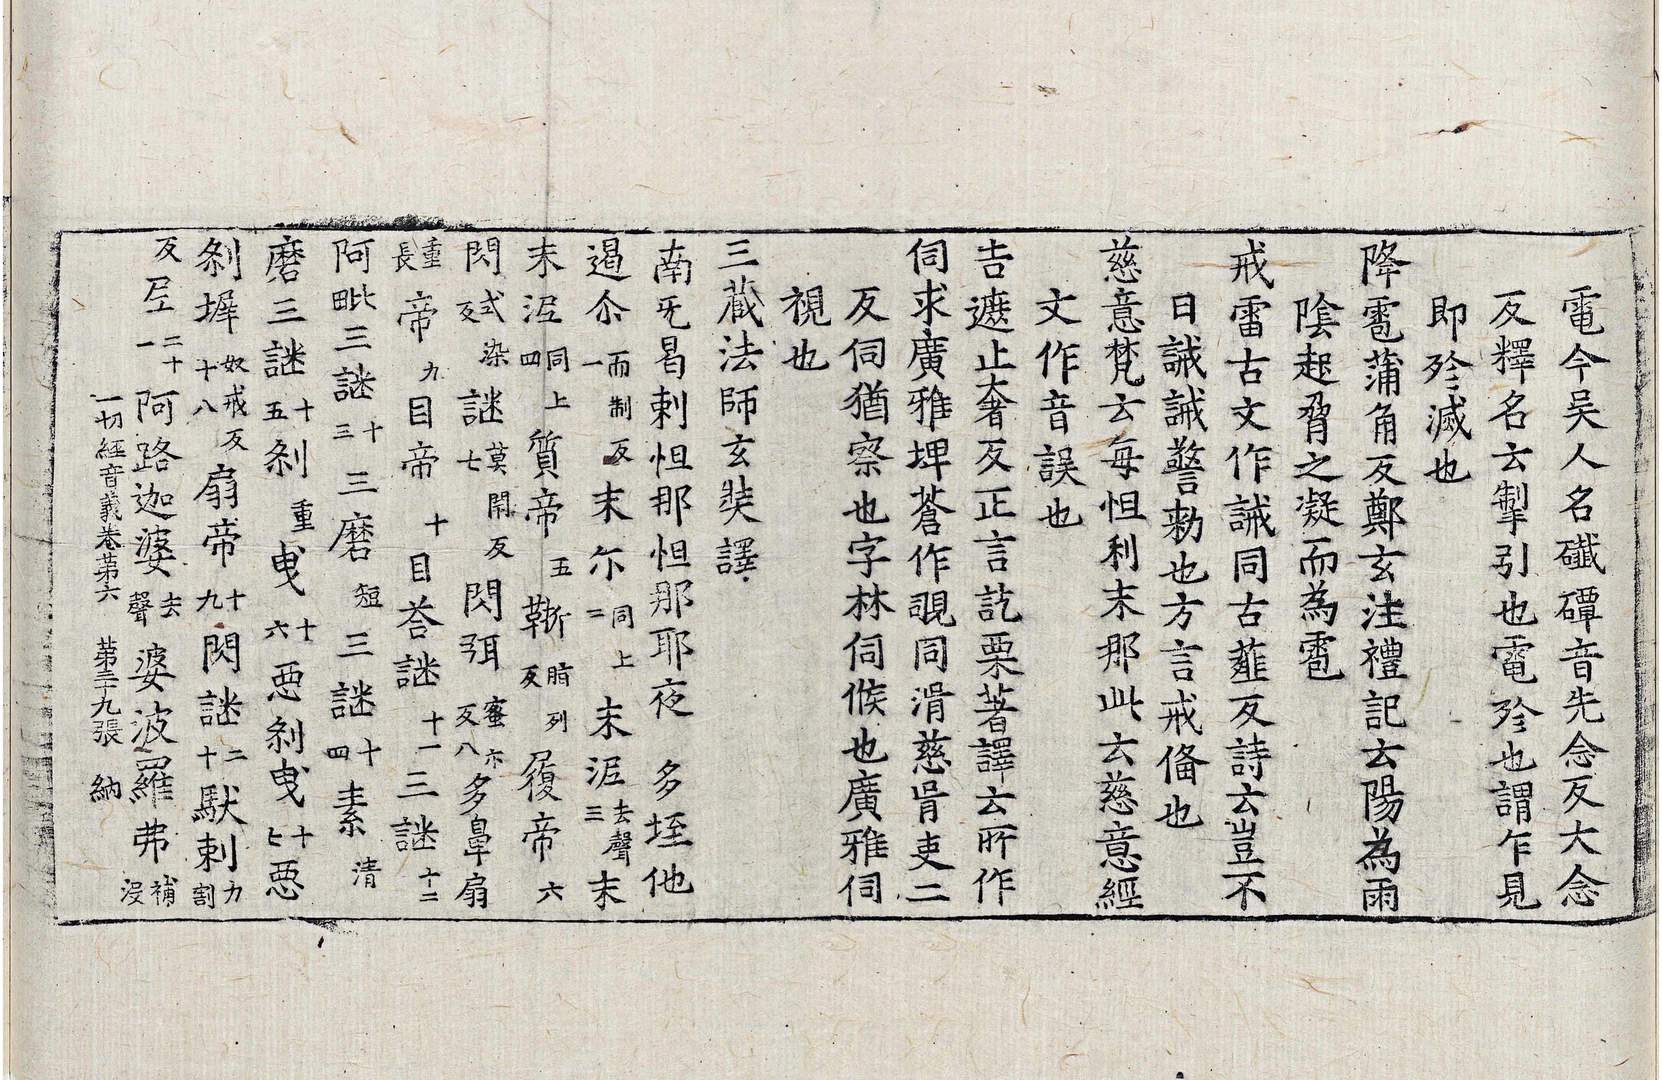 電今吴人名礷磹音先念反大念
反釋名云掣引也電殄也謂乍見
即殄滅也
降雹蒲角反鄭玄注禮記云陽為雨
陰起脅之凝而為雹
戒雷古文作誡同古薤反詩云豈不
日誡誡警勑也方言戒俻也
慈意梵云每怛利末那此云慈意經
文作音誤也
吉遮止奢反正言訖栗著譯云所作
伺求廣雅埤蒼作覗同滑慈胥吏二
反伺猶察也字林伺候也廣雅伺
視也
三藏法師玄奘譯
南旡曷剌怛那怛那耶夜 多姪他
遏尒一而制反末尒二同上末泥三去聲末
末泥四同上質帝五靳斯脂列反履帝六
閃式染反謎七莫閇反閃弭蜜尒反八多鼻扇
重長帝九目帝十目荅謎十一三謎十二
阿毗三謎十三三磨短三謎十四素清
磨三謎十五剎重曳十六惡剎曳十七惡
剎墀奴戒反十八扇帝十九閃謎二十馱剌力割
反屋二十一阿路迦婆去聲婆波羅弗補沒
一切經音義卷苐六 苐三十九張 納